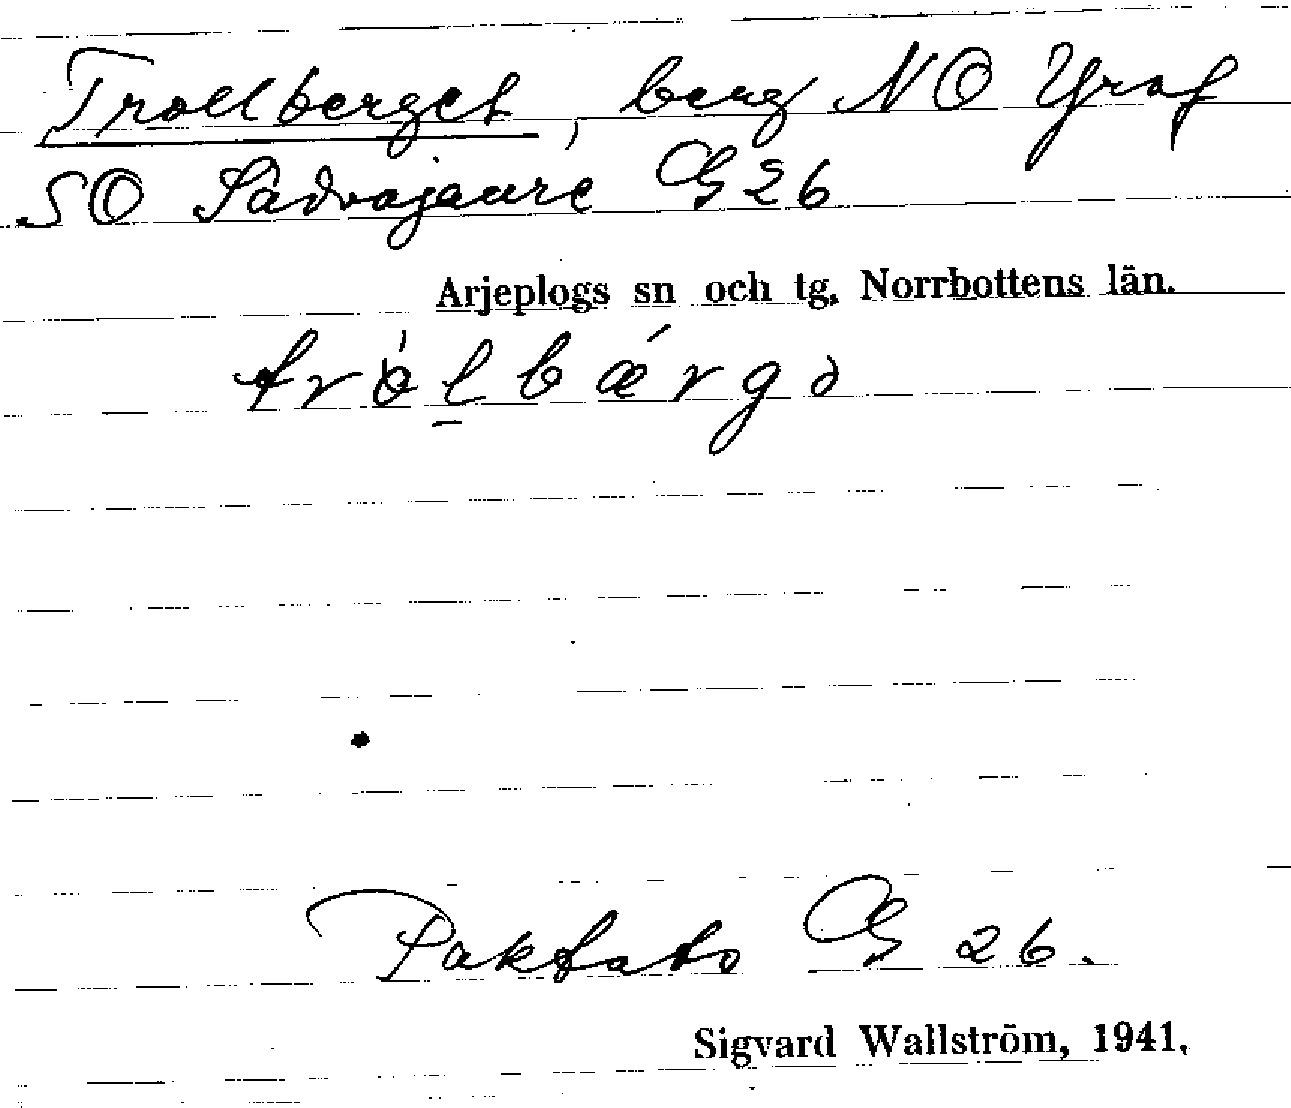 Trollberget, berg NO Graf
SO Sädvajaure G 26
Arjeplogs sn och tg. Norrbottens län.
tròl̠bǽrgə
Paktato G 26.
Sigvard Wallström, 1941.